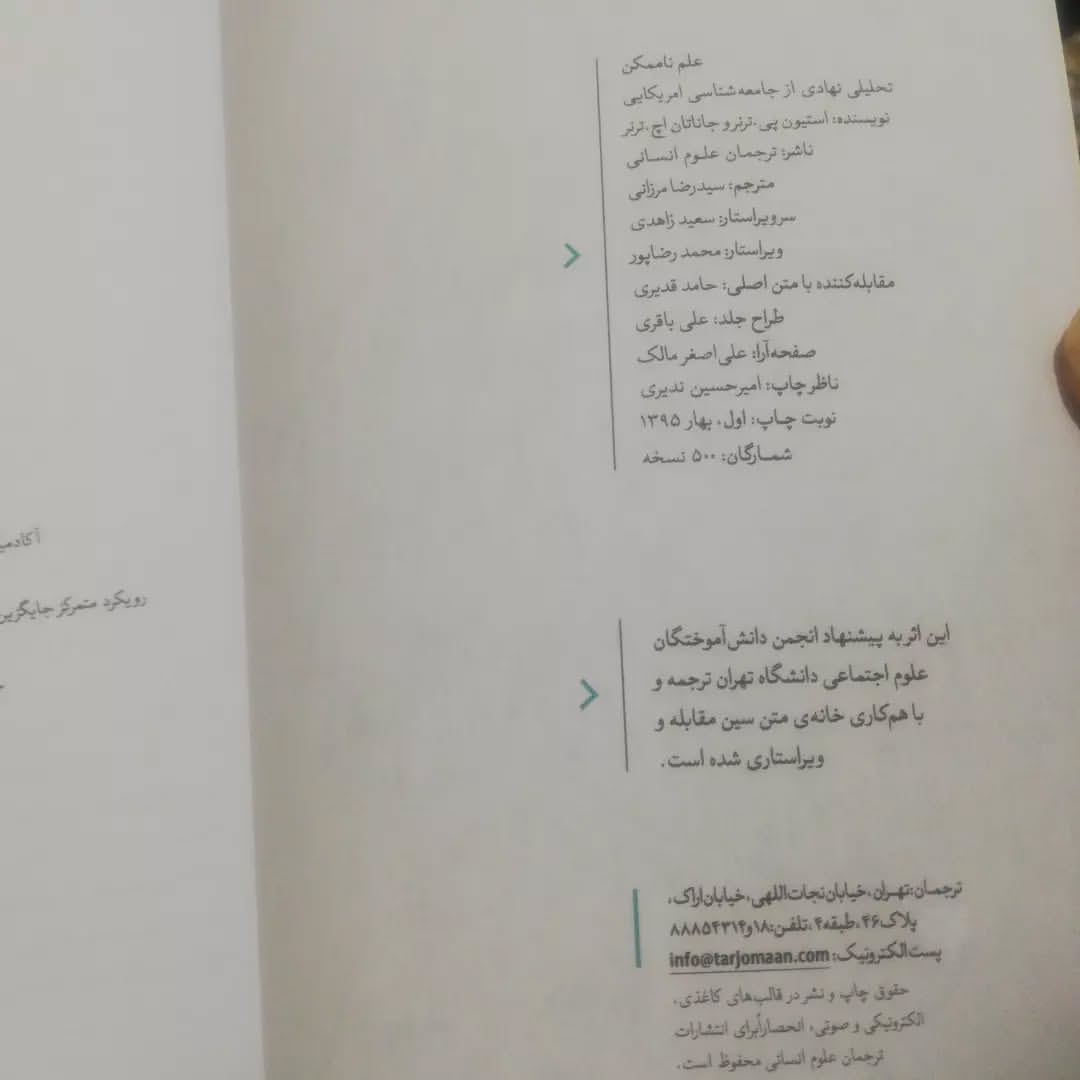 علم ناممکن
تحلیلی نهادی از جامعه‌شناسی امریکایی
نویسنده: استیون پی. ترنر و جاناتان اچ. ترنر
ناشر: ترجمان علوم انسانی
مترجم: سیدرضا مرزانی
سرویراستار: سعید زاهدی
ویراستار: محمد رضاپور
مقابله‌کننده با متن اصلی: حامد قدیری
طراح جلد: علی باقری
صفحه‌آرا: علی‌اصغر مالک
ناظر چاپ: امیرحسین ندیری
نوبت چاپ: اول، بهار ۱۳۹۵
شمارگان: ۵۰۰ نسخه
این اثر به پیشنهاد انجمن دانش‌آموختگان
علوم اجتماعی دانشگاه تهران ترجمه و
با هم‌کاری خانه‌ی متن سین مقابله و
ویراستاری شده است.
ترجمان: تهران، خیابان نجات‌اللهی، خیابان اراک،
پلاک ۴۶، طبقه ۴، تلفن: ۱۸ و ۸۸۸۵۴۳۱۴
پست الکترونیک: info@tarjomaan.com
حقوق چاپ و نشر در قالب‌های کاغذی،
الکترونیکی و صوتی، انحصاراً برای انتشارات
ترجمان علوم انسانی محفوظ است.
رویکرد متمرکز جایگزین